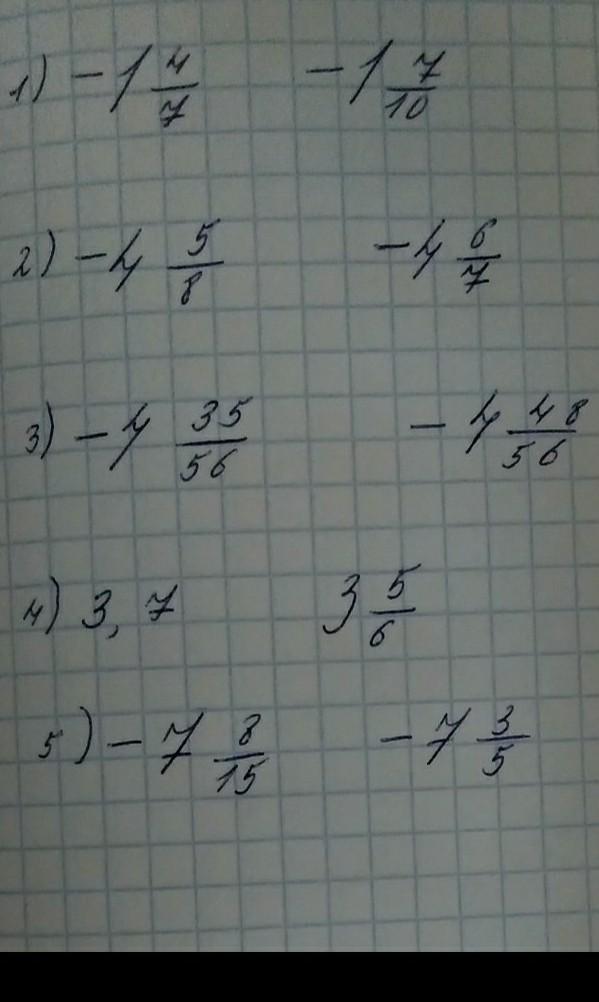 1) -1 4/7 -1 7/10
2) -4 5/8 -4 6/7
3) -4 35/56 -4 48/56
4) 3,7 3 5/6
5) -7 8/15 -7 3/5